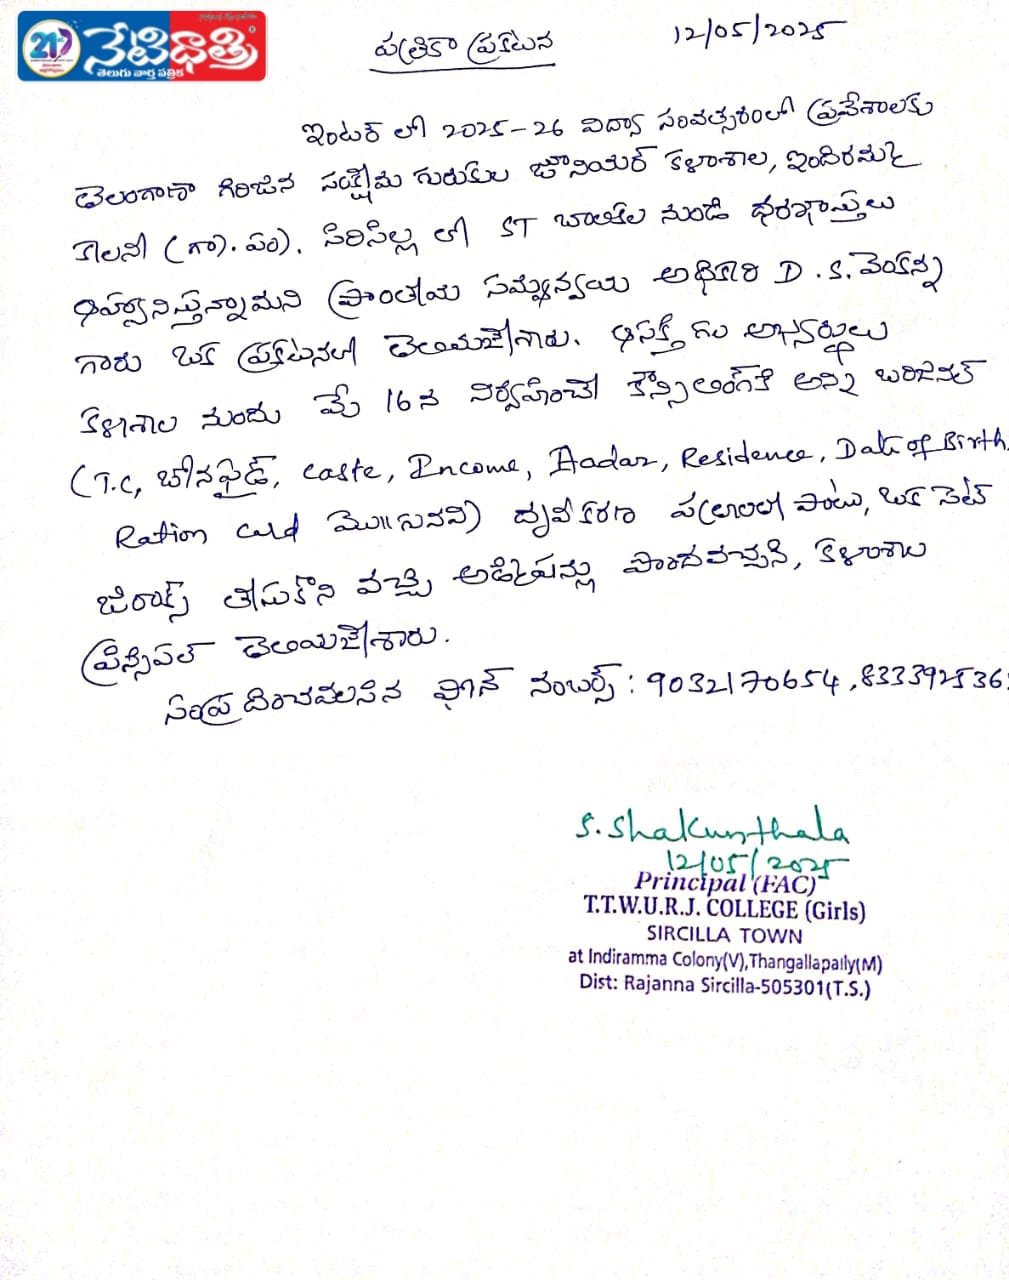 217 నేటిధాత్రి
తెలుగు వార్త పత్రిక
పత్రికా ప్రకటన 12/05/2025
ఇంటర్ లో 2025-26 విద్యా సంవత్సరంలో ప్రవేశాలకు
తెలంగాణా గిరిజన సంక్షేమ గురుకుల జూనియర్ కళాశాల, ఇందిరమ్మ
కాలనీ (గ్రా). మం). సిరిసిల్ల లో ST బాలికల నుండి ధరఖాస్తులు
ఆహ్వానిస్తున్నామని ప్రాంతీయ సమన్వయ అధికారి D.S. వెంకన్న
గారు ఒక ప్రకటనలో తెలియజేశారు. ఆసక్తి గల అభ్యర్థులు
కళాశాల నందు మే 16న నిర్వహించే కౌన్సిలింగ్‌కి అన్ని ఒరిజినల్
(T.C, బోనఫైడ్, caste, Income, Aadar, Residence, Date of Birth,
Ration card మొ||నవి) ధృవీకరణ పత్రాలతో పాటు, ఒక సెట్
జిరాక్స్ తీసుకొని వచ్చి అడ్మిషన్లు పొందవచ్చని, కళాశాల
ప్రిన్సిపల్ తెలియజేశారు.
సంప్రదించవలసిన ఫోన్ నంబర్స్ : 9032170654, 833392536
S. Shakunthala
12/05/2025
Principal (FAC)
T.T.W.U.R.J. COLLEGE (Girls)
SIRCILLA TOWN
at Indiramma Colony(V),Thangallapally(M)
Dist: Rajanna Sircilla-505301(T.S.)